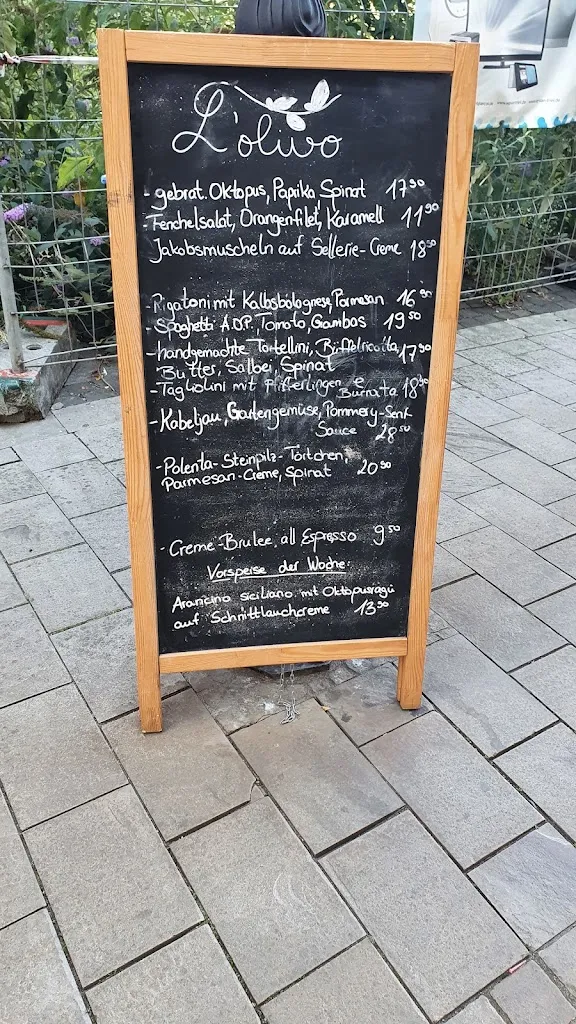 L'olivo
- gebrat. Oktopus, Paprika, Spinat 17⁹⁰
- Fenchelsalat, Orangenfilet, Karamell 11⁹⁰
Jakobsmuscheln auf Sellerie-Creme 18⁵⁰
- Rigatoni mit Kalbsbolognese, Parmesan 16⁹⁰
- Spaghetti A.O.P., Tomato, Gambas 19⁵⁰
- handgemachte Tortellini, Büffelricotta, 17⁹⁰
Butter, Salbei, Spinat
- Tagliolini mit Pfifferlingen e
Burrata 18⁹⁰
- Kabeljau, Gartengemüse, Pommery-Senf
Sauce 28⁵⁰
- Polenta-Steinpilz-Törtchen,
Parmesan-Creme, Spinat 20⁹⁰
- Creme-Brulee, all Espresso 9⁵⁰
Vorspeise der Woche:
Arancino siciliano mit Oktopusragú
auf Schnittlauchcreme 13⁹⁰